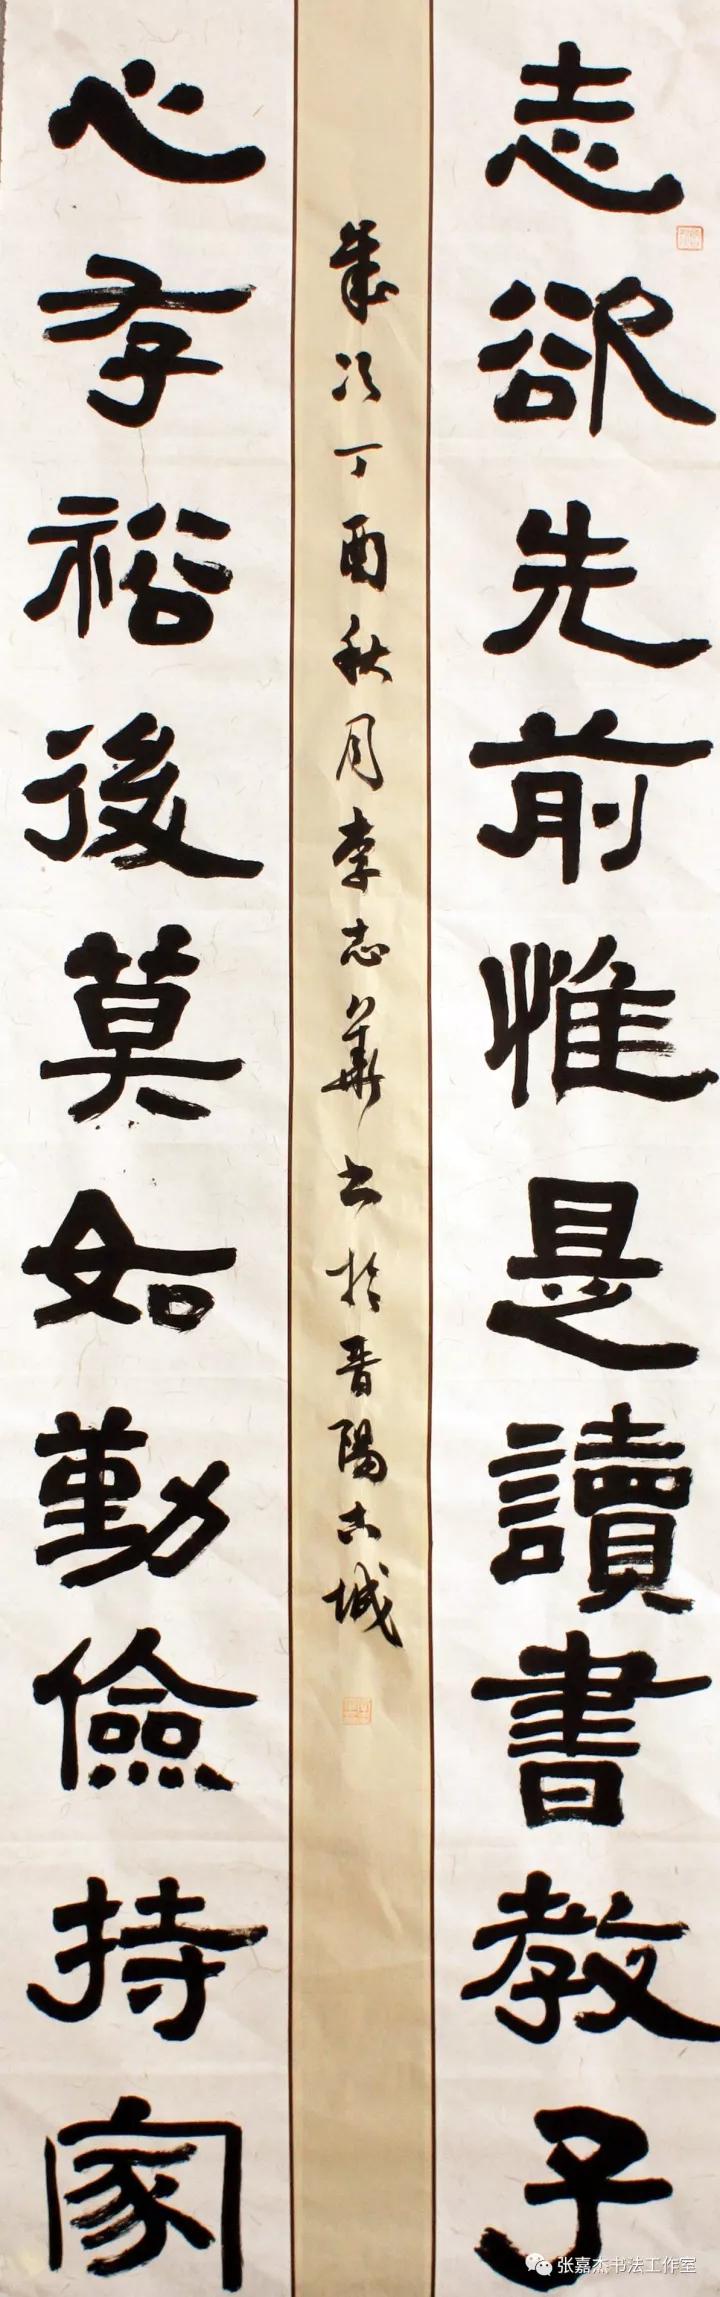 志欲先前惟是讀書教子
歲次丁酉秋月李志華书於晋陽古城
心存裕後莫如勤儉持家
张嘉杰书法工作室